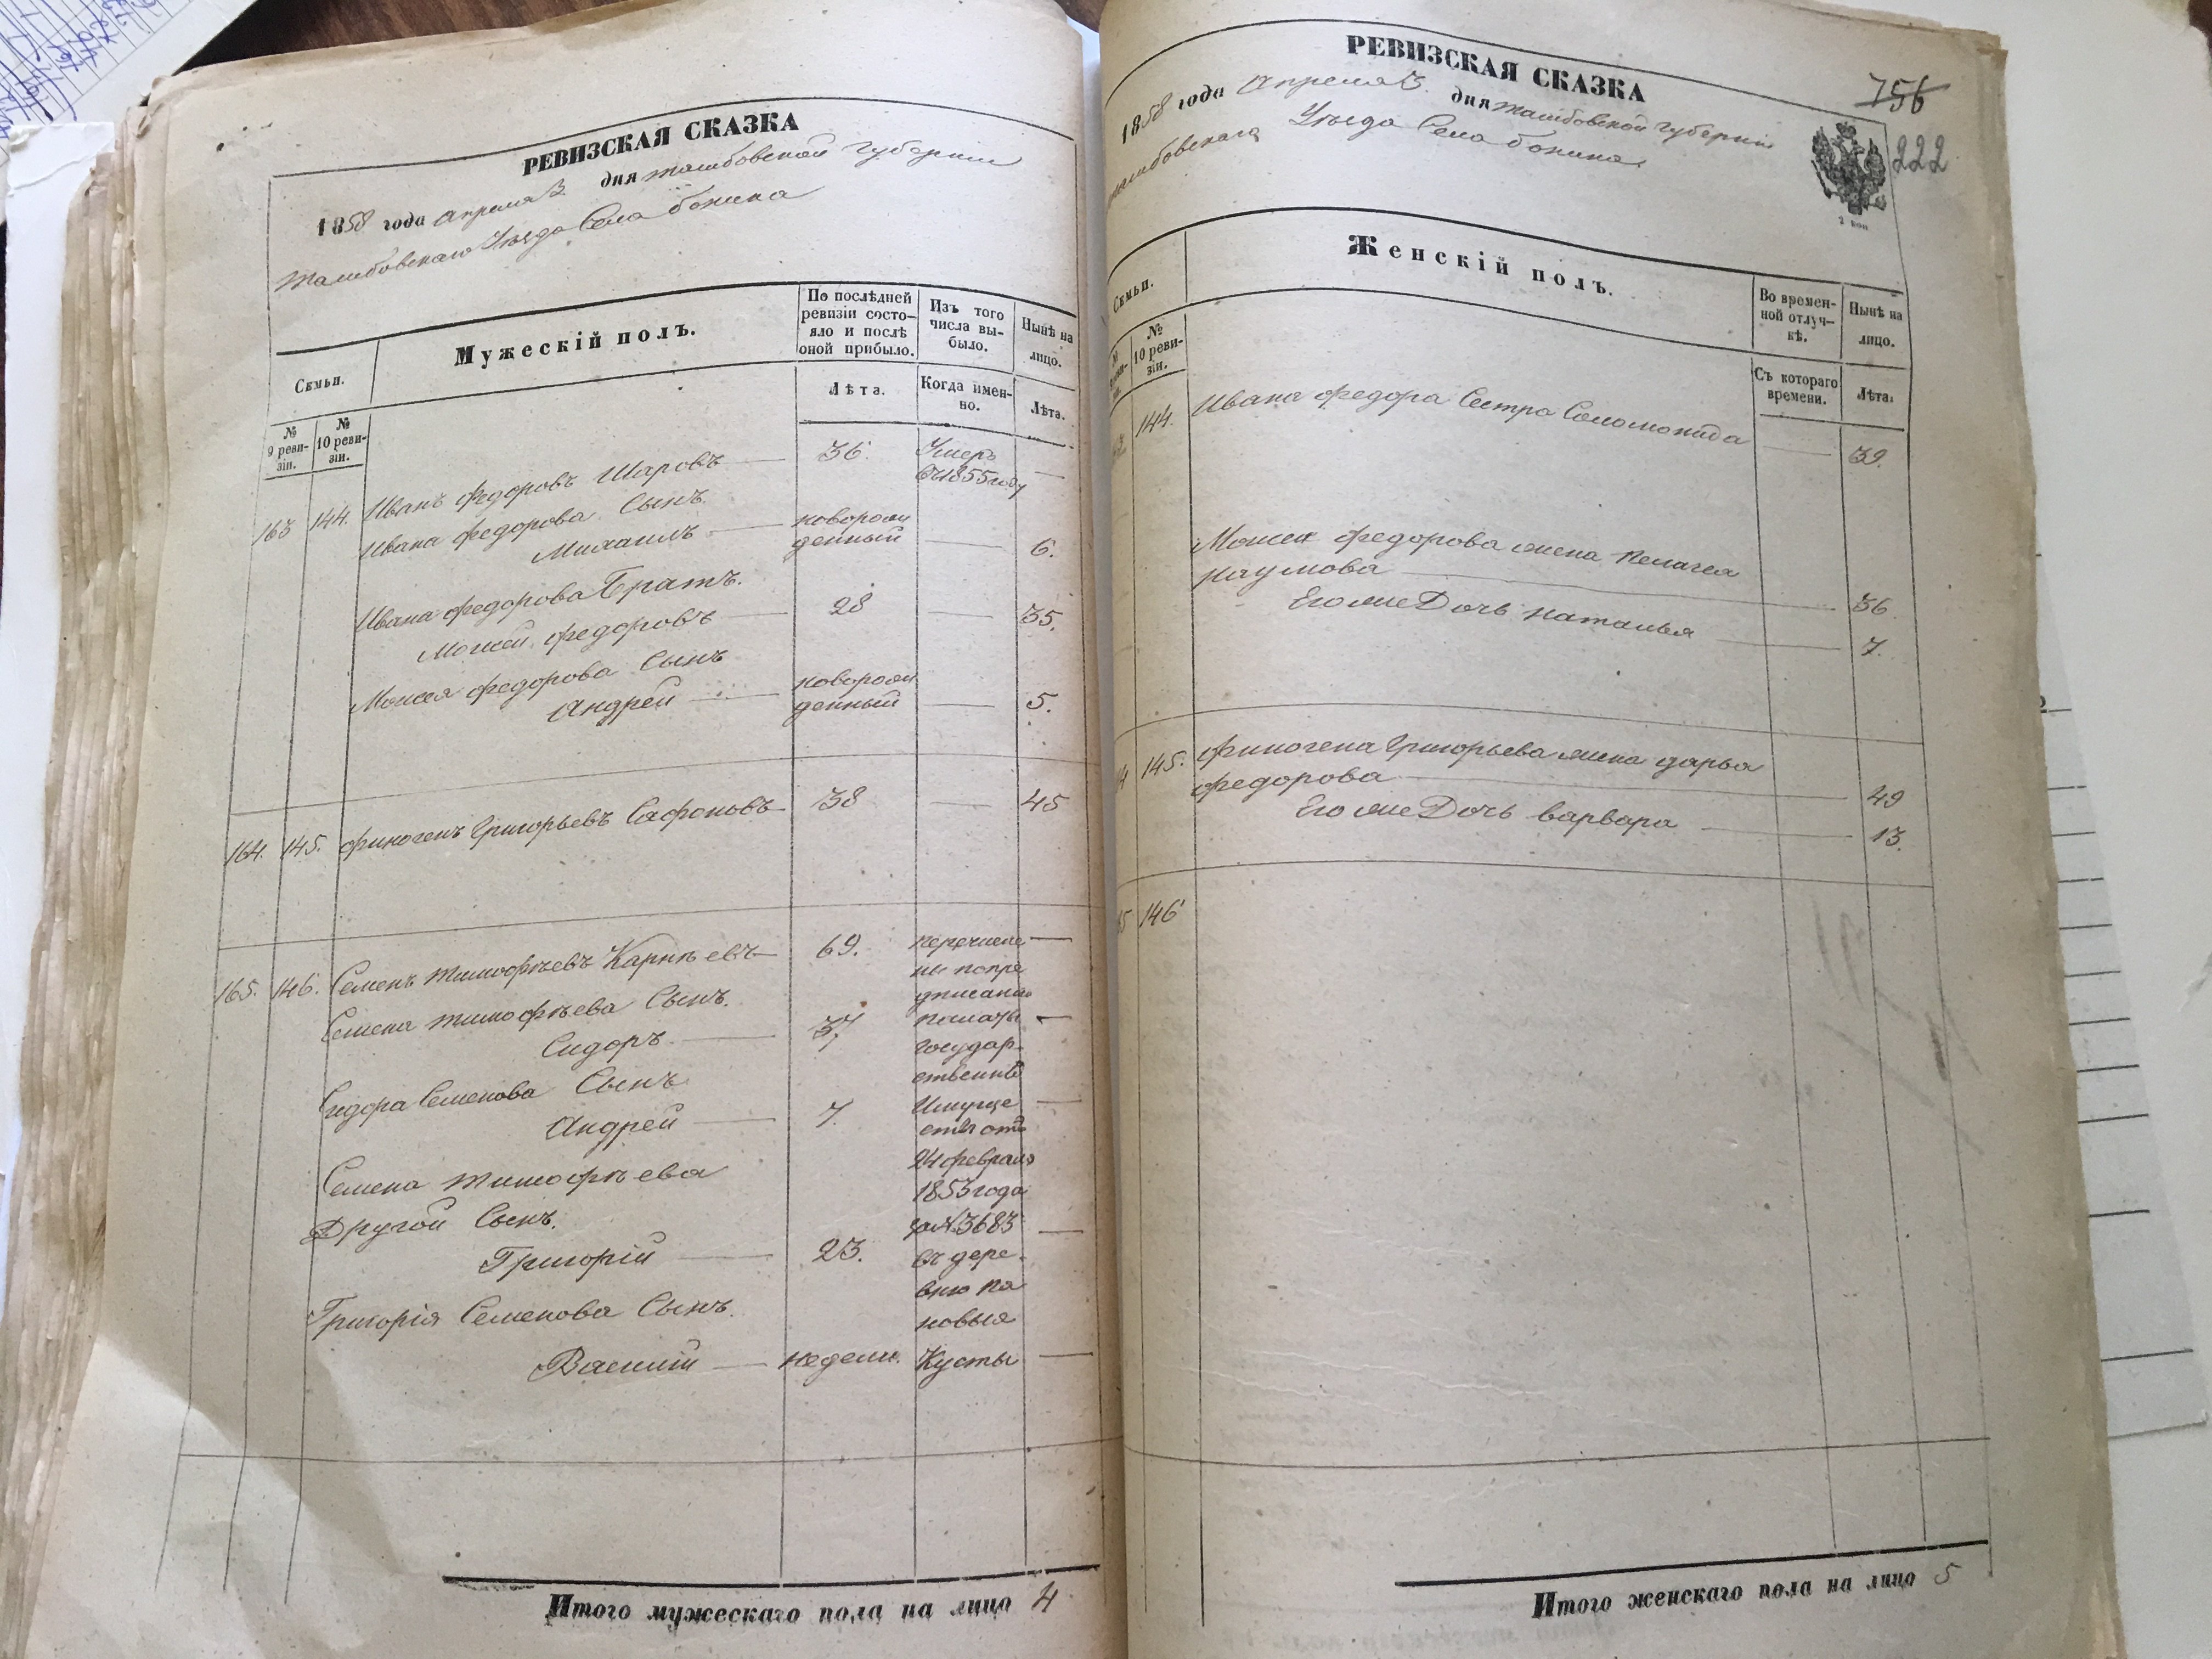 РЕВИЗСКАЯ СКАЗКА
1858 года апреля 3. дня тамбовской губерніи
тамбовскаго Уѣзда Села бокина
Семьи.
Мужескій полъ.
По послѣдней ревизіи состояло и послѣ оной прибыло.
Изъ того числа выбыло.
Нынѣ на лицо.
№ 9 ревизіи.
№ 10 ревизіи.
Лѣта.
Когда именно.
Лѣта.
163 144. Иванъ федоровъ Шаровъ 36. Умеръ
въ 1855 году
Ивана федорова Сынъ.
Михаилъ новорож
денный 6.
Ивана федорова Братъ.
Моисей федоровъ 28 35.
Моисея федорова Сынъ
Андрей новорож
денный 5.
164. 145. финогенъ Григорьевъ Сафоновъ 38 45
165. 146. Семенъ тимофѣевъ Карпѣевъ 69. перечисле
ны попре
дписанию
Семена тимофѣева Сынъ.
Сидоръ 37 палаты
государ-
ственнъ
Сидора Семенова Сынъ
Андрей 7. Имуще
ствъ отъ
24 февраля
Семена тимофѣева
1853 года
Другой Сынъ. за №. 3683
Григорій 23. въ дере-
вню па
Григорія Семенова Сынъ.
новыя
Василій недели. Кусты
Итого мужескаго пола на лицо 4
РЕВИЗСКАЯ СКАЗКА
756
1858 года апреля 3. дня тамбовской губерніи
222
тамбовскаго Уѣзда Села бокина
2 коп
Семьи.
Женскій полъ.
Во временной отлучкѣ.
Нынѣ на лицо.
№ 10 ревизіи.
Съ котораго времени.
Лѣта.
144. Ивана федора Сестра Соломонида 39.
Моисея федорова жена пелагея
наумова 36
Его же Дочь наталья 7.
145. финогена Григорьева жена дарья
федорова 49
Его же Дочь варвара 13.
146
Итого женскаго пола на лицо 5